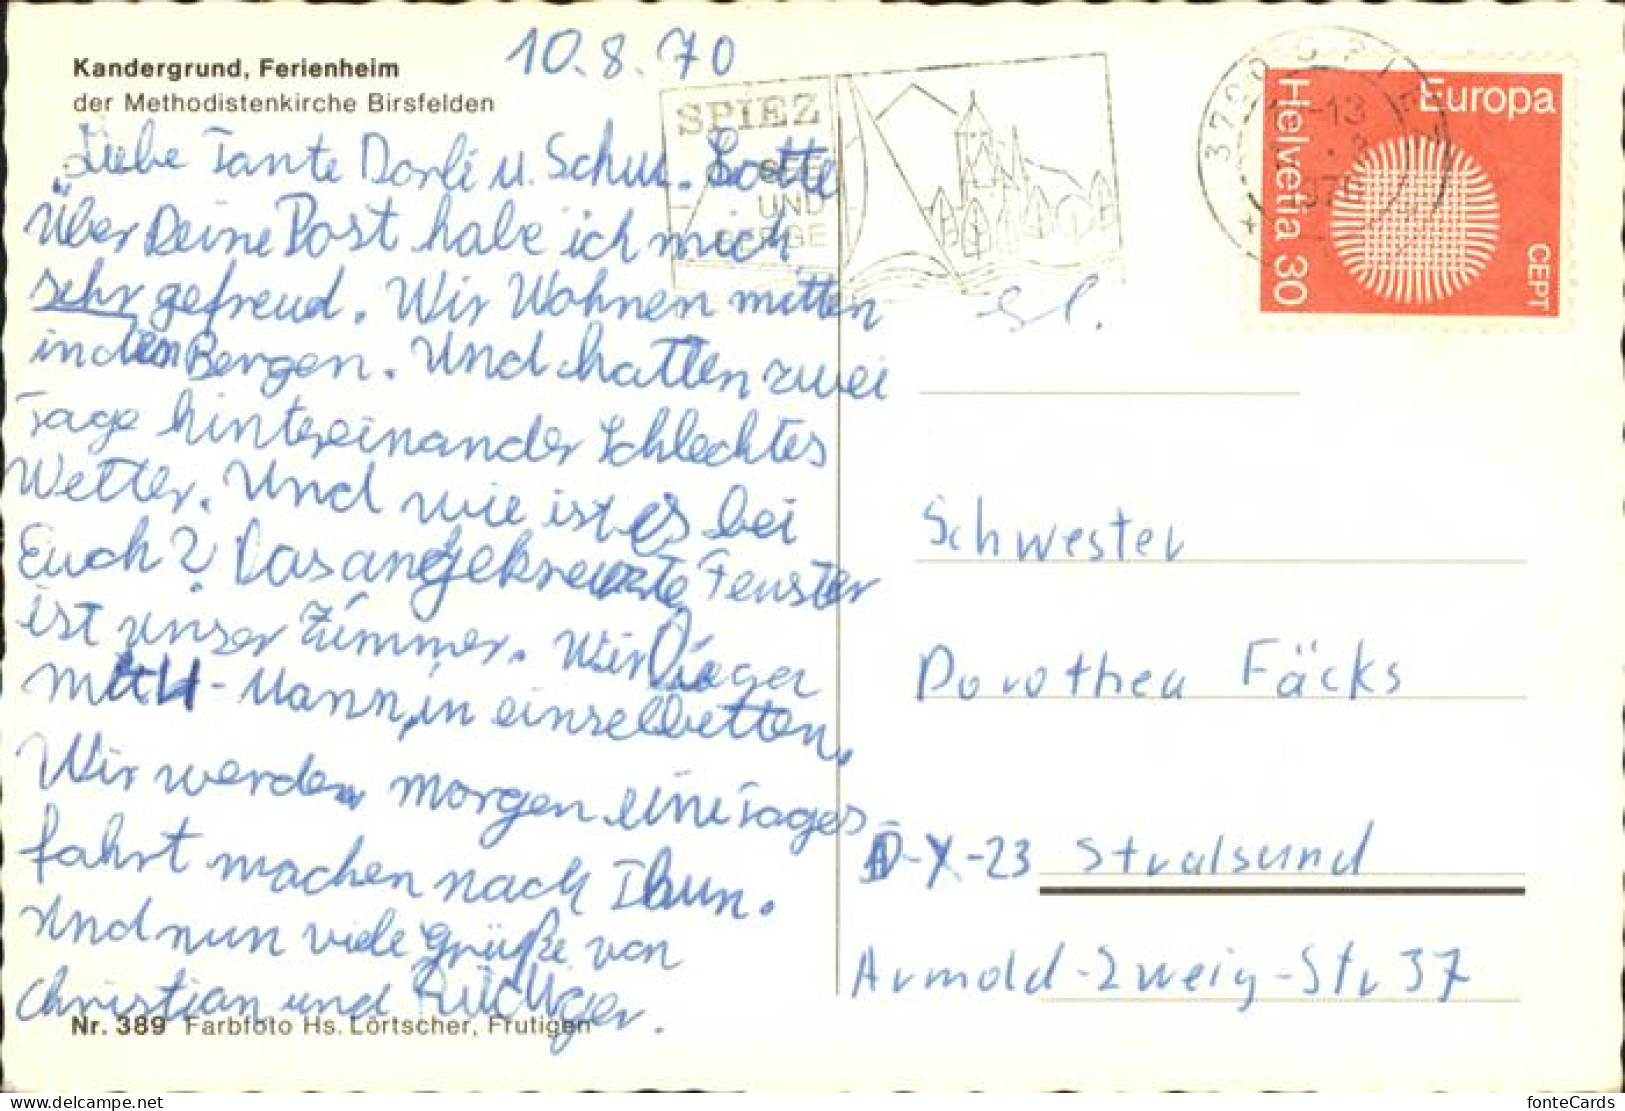 Kandergrund, Ferienheim
der Methodistenkirche Birsfelden
10.8.70
Liebe Tante Dorli u. Schw. Lotte
Über Deine Post habe ich mich
sehr gefreud. Wir Wohnen mitten
in den Bergen. Und hatten zwei
Tage hintereinander schlechtes
Wetter. Und wie ist es bei
Euch? Das angekreuzte Fenster
ist unser Zimmer. Wir
mit 4-Mann, in einzelbetten.
Wir werden morgen eine Tages
fahrt machen nach Thun.
Und nun viele Grüße von
Christian und Rüdiger.
Nr. 389 Farbfoto Hs. Lörtscher, Frutigen
SPIEZ
SEE
UND
BERGE
Europa
Helvetia 30
CEPT
Schwester
Dorothea Fäcks
D-X-23 Stralsund
Arnold-Zweig-Str 37
fonteCards